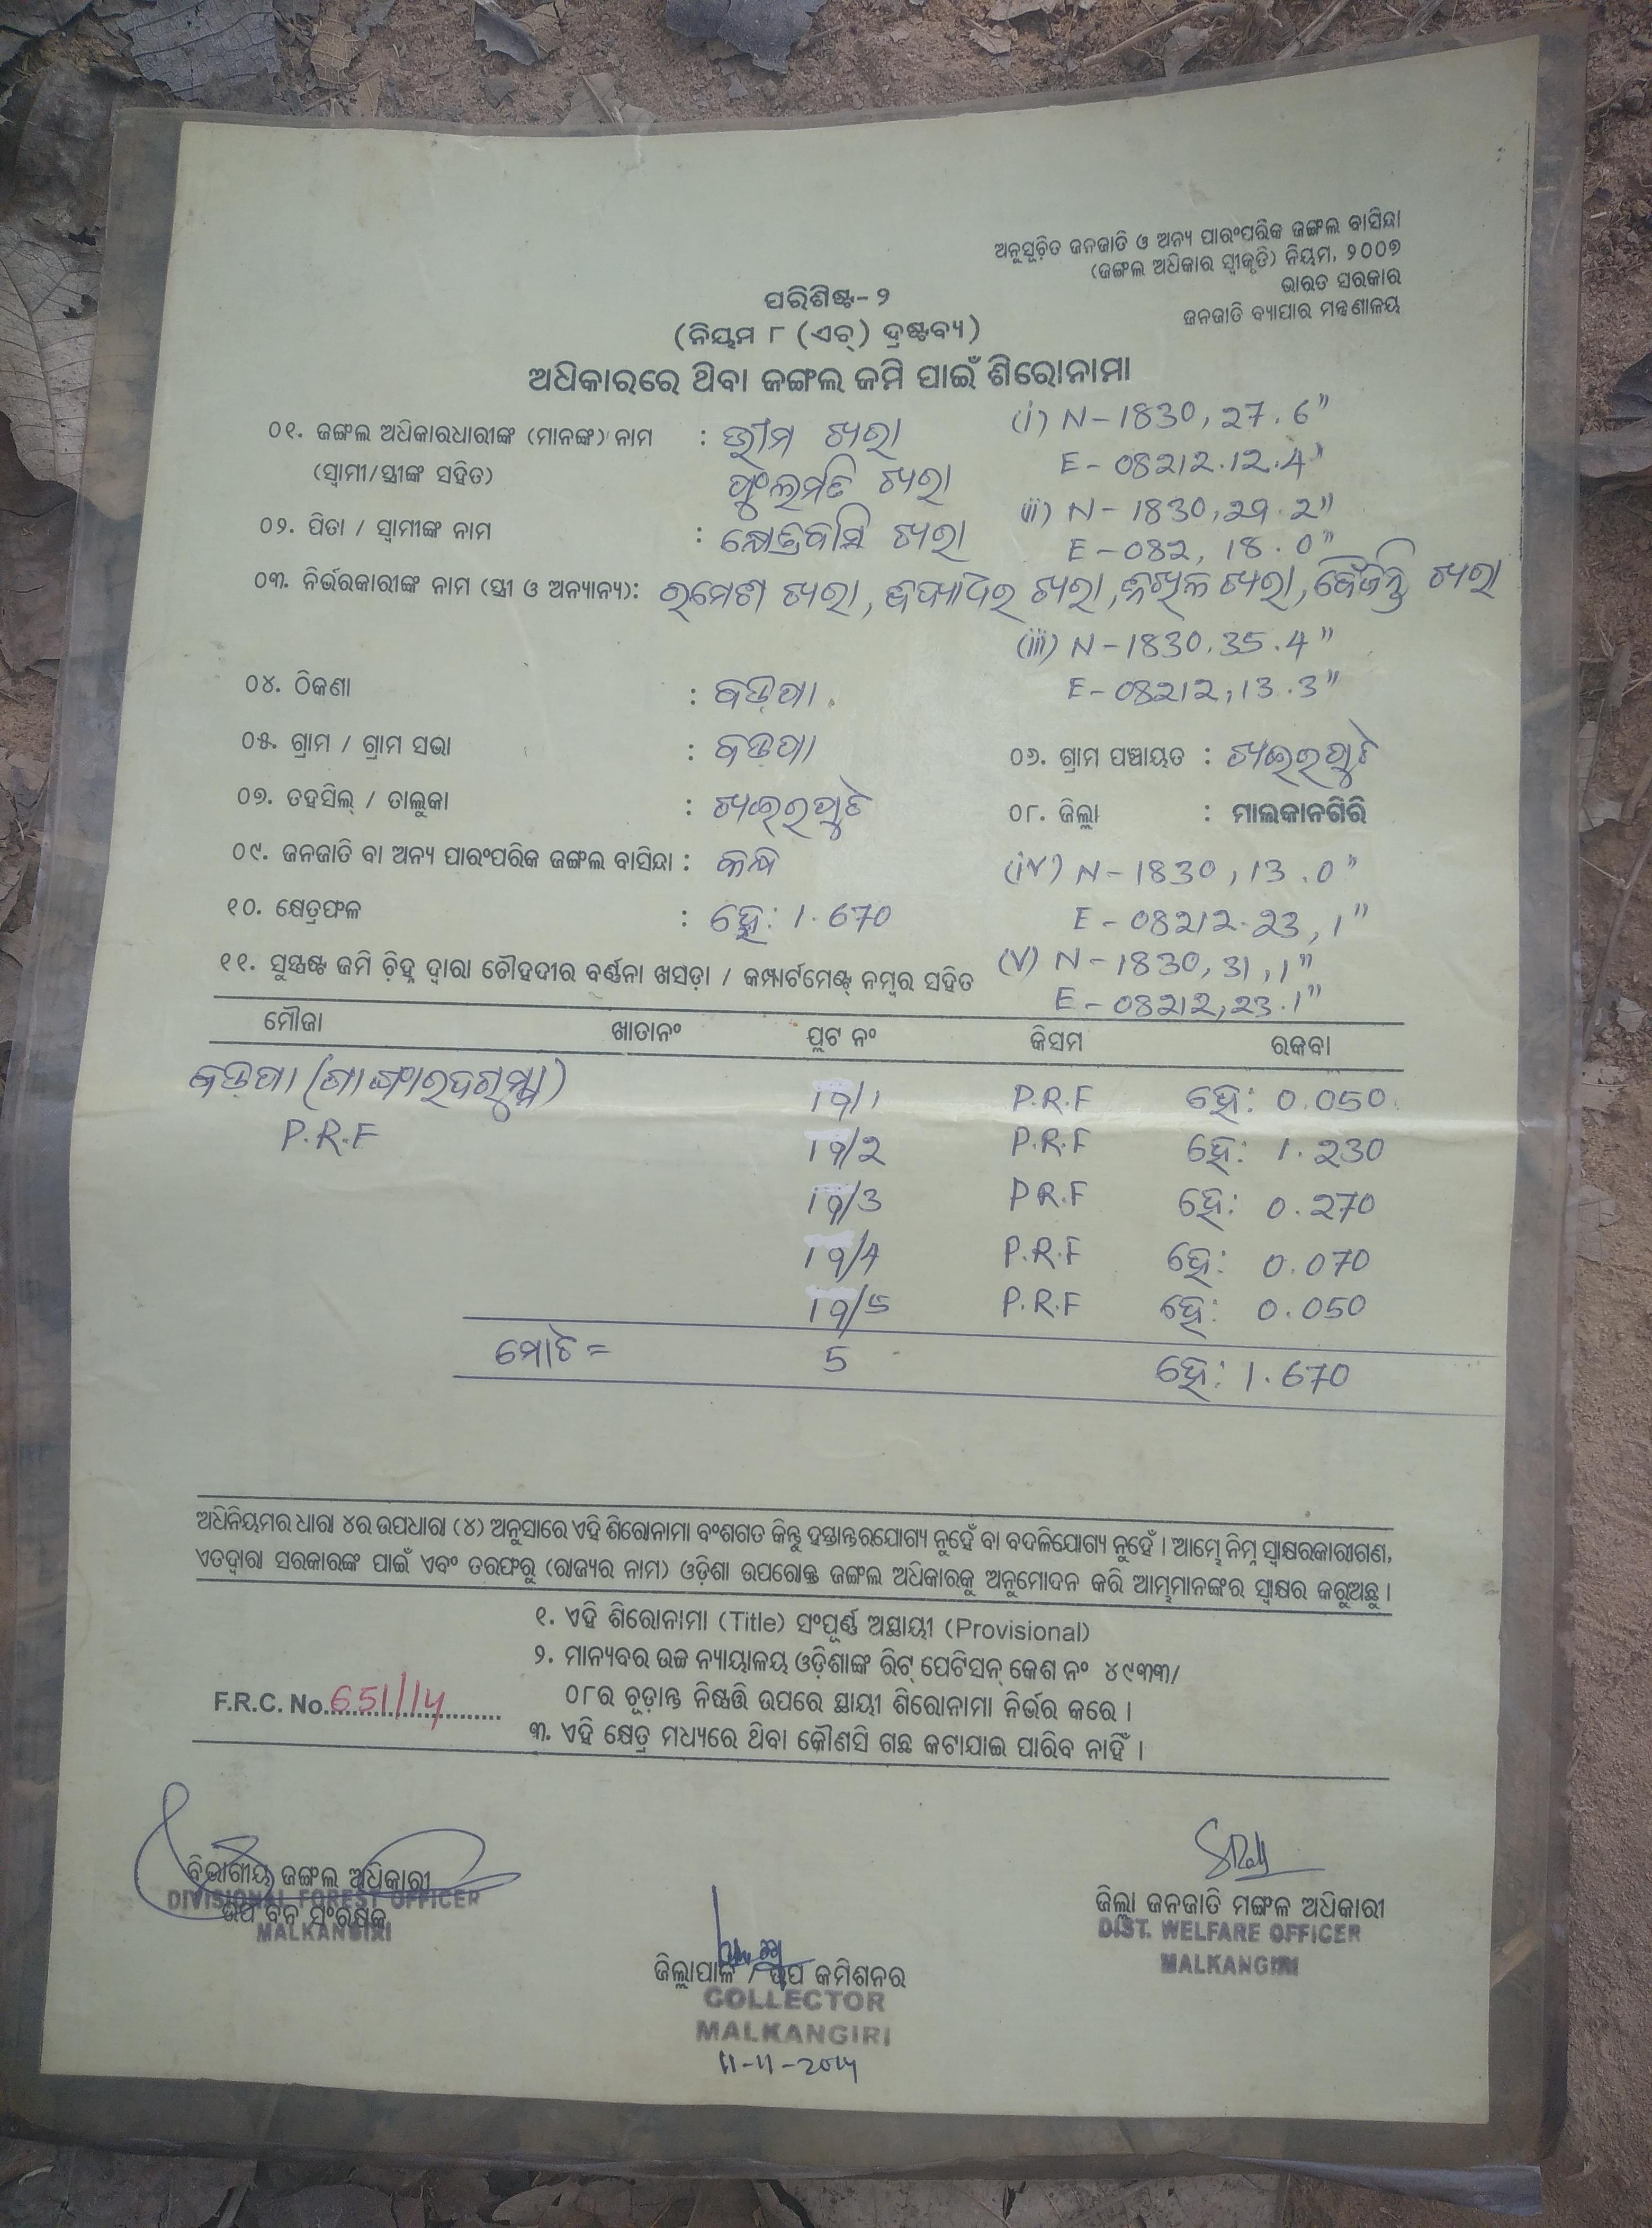 ଅନୁସୂଚିତ ଜନଜାତି ଓ ଅନ୍ୟ ପାରଂପରିକ ଜଙ୍ଗଲ ବାସିନ୍ଦା
(ଜଙ୍ଗଲ ଅଧିକାର ସ୍ୱୀକୃତି) ନିୟମ, ୨୦୦୭
ଭାରତ ସରକାର
ଜନଜାତି ବ୍ୟାପାର ମନ୍ତ୍ରଣାଳୟ
ପରିଶିଷ୍ଟ-୨
(ନିୟମ ୮ (ଏଚ୍) ଦ୍ରଷ୍ଟବ୍ୟ)
ଅଧିକାରରେ ଥିବା ଜଙ୍ଗଲ ଜମି ପାଇଁ ଶିରୋନାମା
୦୧. ଜଙ୍ଗଲ ଅଧିକାରଧାରୀଙ୍କ (ମାନଙ୍କ) ନାମ : ଭୀମ ଖରା (i) N-1830, 27.6"
E-08212.12.4"
(ସ୍ୱାମୀ/ସ୍ତ୍ରୀଙ୍କ ସହିତ) ଫୁଲମତି ଖରା
(ii) N-1830, 29.2"
୦୨. ପିତା / ସ୍ୱାମୀଙ୍କ ନାମ : ଖରା E-082, 18.0"
୦୩. ନିର୍ଭରକାରୀଙ୍କ ନାମ (ସ୍ତ୍ରୀ ଓ ଅନ୍ୟାନ୍ୟ): ରମେଶ ଖରା, ଖରା, ଖରା, ଖରା
(iii) N-1830.35.4"
୦୪. ଠିକଣା : ବଡପଡା E-08212, 13.3"
୦୫. ଗ୍ରାମ / ଗ୍ରାମ ସଭା : ୦୬. ଗ୍ରାମ ପଞ୍ଚାୟତ : ଖଇରପୁଟ
୦୭. ତହସିଲ୍ / ତାଲୁକା : ଖଇରପୁଟ ୦୮. ଜିଲ୍ଲା : ମାଲକାନଗିରି
୦୯. ଜନଜାତି ବା ଅନ୍ୟ ପାରଂପରିକ ଜଙ୍ଗଲ ବାସିନ୍ଦା : (iv) N-1830, 13.0"
୧୦. କ୍ଷେତ୍ରଫଳ : ହେ: 1.670 E-08212.23, 1"
୧୧. ସୁସ୍ପଷ୍ଟ ଜମି ଚିହ୍ନ ଦ୍ୱାରା ଚୌହଦୀର ବର୍ଣ୍ଣନା ଖସଡ଼ା / କମ୍ପାର୍ଟମେଣ୍ଟ ନମ୍ବର ସହିତ (v) N-1830, 31, 1"
E-08212, 23.1"
ମୌଜା ଖାତାନଂ ପ୍ଲଟ ନଂ କିସମ ରକବା
19/1 P.R.F ହେ: 0.050
P.R.F 19/2 P.R.F ହେ: 1.230
19/3 P.R.F ହେ: 0.270
19/4 P.R.F ହେ: 0.070
19/5 P.R.F ହେ: 0.050
ମୋଟ = 5 ହେ: 1.670
ଅଧିନିୟମର ଧାରା ୪ର ଉପଧାରା (୪) ଅନୁସାରେ ଏହି ଶିରୋନାମା ବଂଶଗତ କିନ୍ତୁ ହସ୍ତାନ୍ତରଯୋଗ୍ୟ ନୁହେଁ ବା ବଦଳିଯୋଗ୍ୟ ନୁହେଁ । ଆମ୍ଭେ ନିମ୍ନ ସ୍ୱାକ୍ଷରକାରୀଗଣ,
ଏତଦ୍ୱାରା ସରକାରଙ୍କ ପାଇଁ ଏବଂ ତରଫରୁ (ରାଜ୍ୟର ନାମ) ଓଡ଼ିଶା ଉପରୋକ୍ତ ଜଙ୍ଗଲ ଅଧିକାରକୁ ଅନୁମୋଦନ କରି ଆମ୍ଭମାନଙ୍କର ସ୍ୱାକ୍ଷର କରୁଅଛୁ ।
୧. ଏହି ଶିରୋନାମା (Title) ସଂପୂର୍ଣ୍ଣ ଅସ୍ଥାୟୀ (Provisional)
୨. ମାନ୍ୟବର ଉଚ୍ଚ ନ୍ୟାୟାଳୟ ଓଡ଼ିଶାଙ୍କ ରିଟ୍ ପେଟିସନ୍ କେଶ ନଂ ୪୯୩୩/
୦୮ର ଚୂଡ଼ାନ୍ତ ନିଷ୍ପତ୍ତି ଉପରେ ସ୍ଥାୟୀ ଶିରୋନାମା ନିର୍ଭର କରେ ।
F.R.C. No. 651/14
୩. ଏହି କ୍ଷେତ୍ର ମଧ୍ୟରେ ଥିବା କୌଣସି ଗଛ କଟାଯାଇ ପାରିବ ନାହିଁ ।
ବିଭାଗୀୟ ଜଙ୍ଗଲ ଅଧିକାରୀ
DIVISIONAL FOREST OFFICER
ଉପ ବନ ସଂରକ୍ଷକ
MALKANGIRI
ଜିଲ୍ଲା ଜନଜାତି ମଙ୍ଗଳ ଅଧିକାରୀ
DIST. WELFARE OFFICER
MALKANGIRI
ଜିଲ୍ଲାପାଳ / ଉପ କମିଶନର
COLLECTOR
MALKANGIRI
11-11-2014